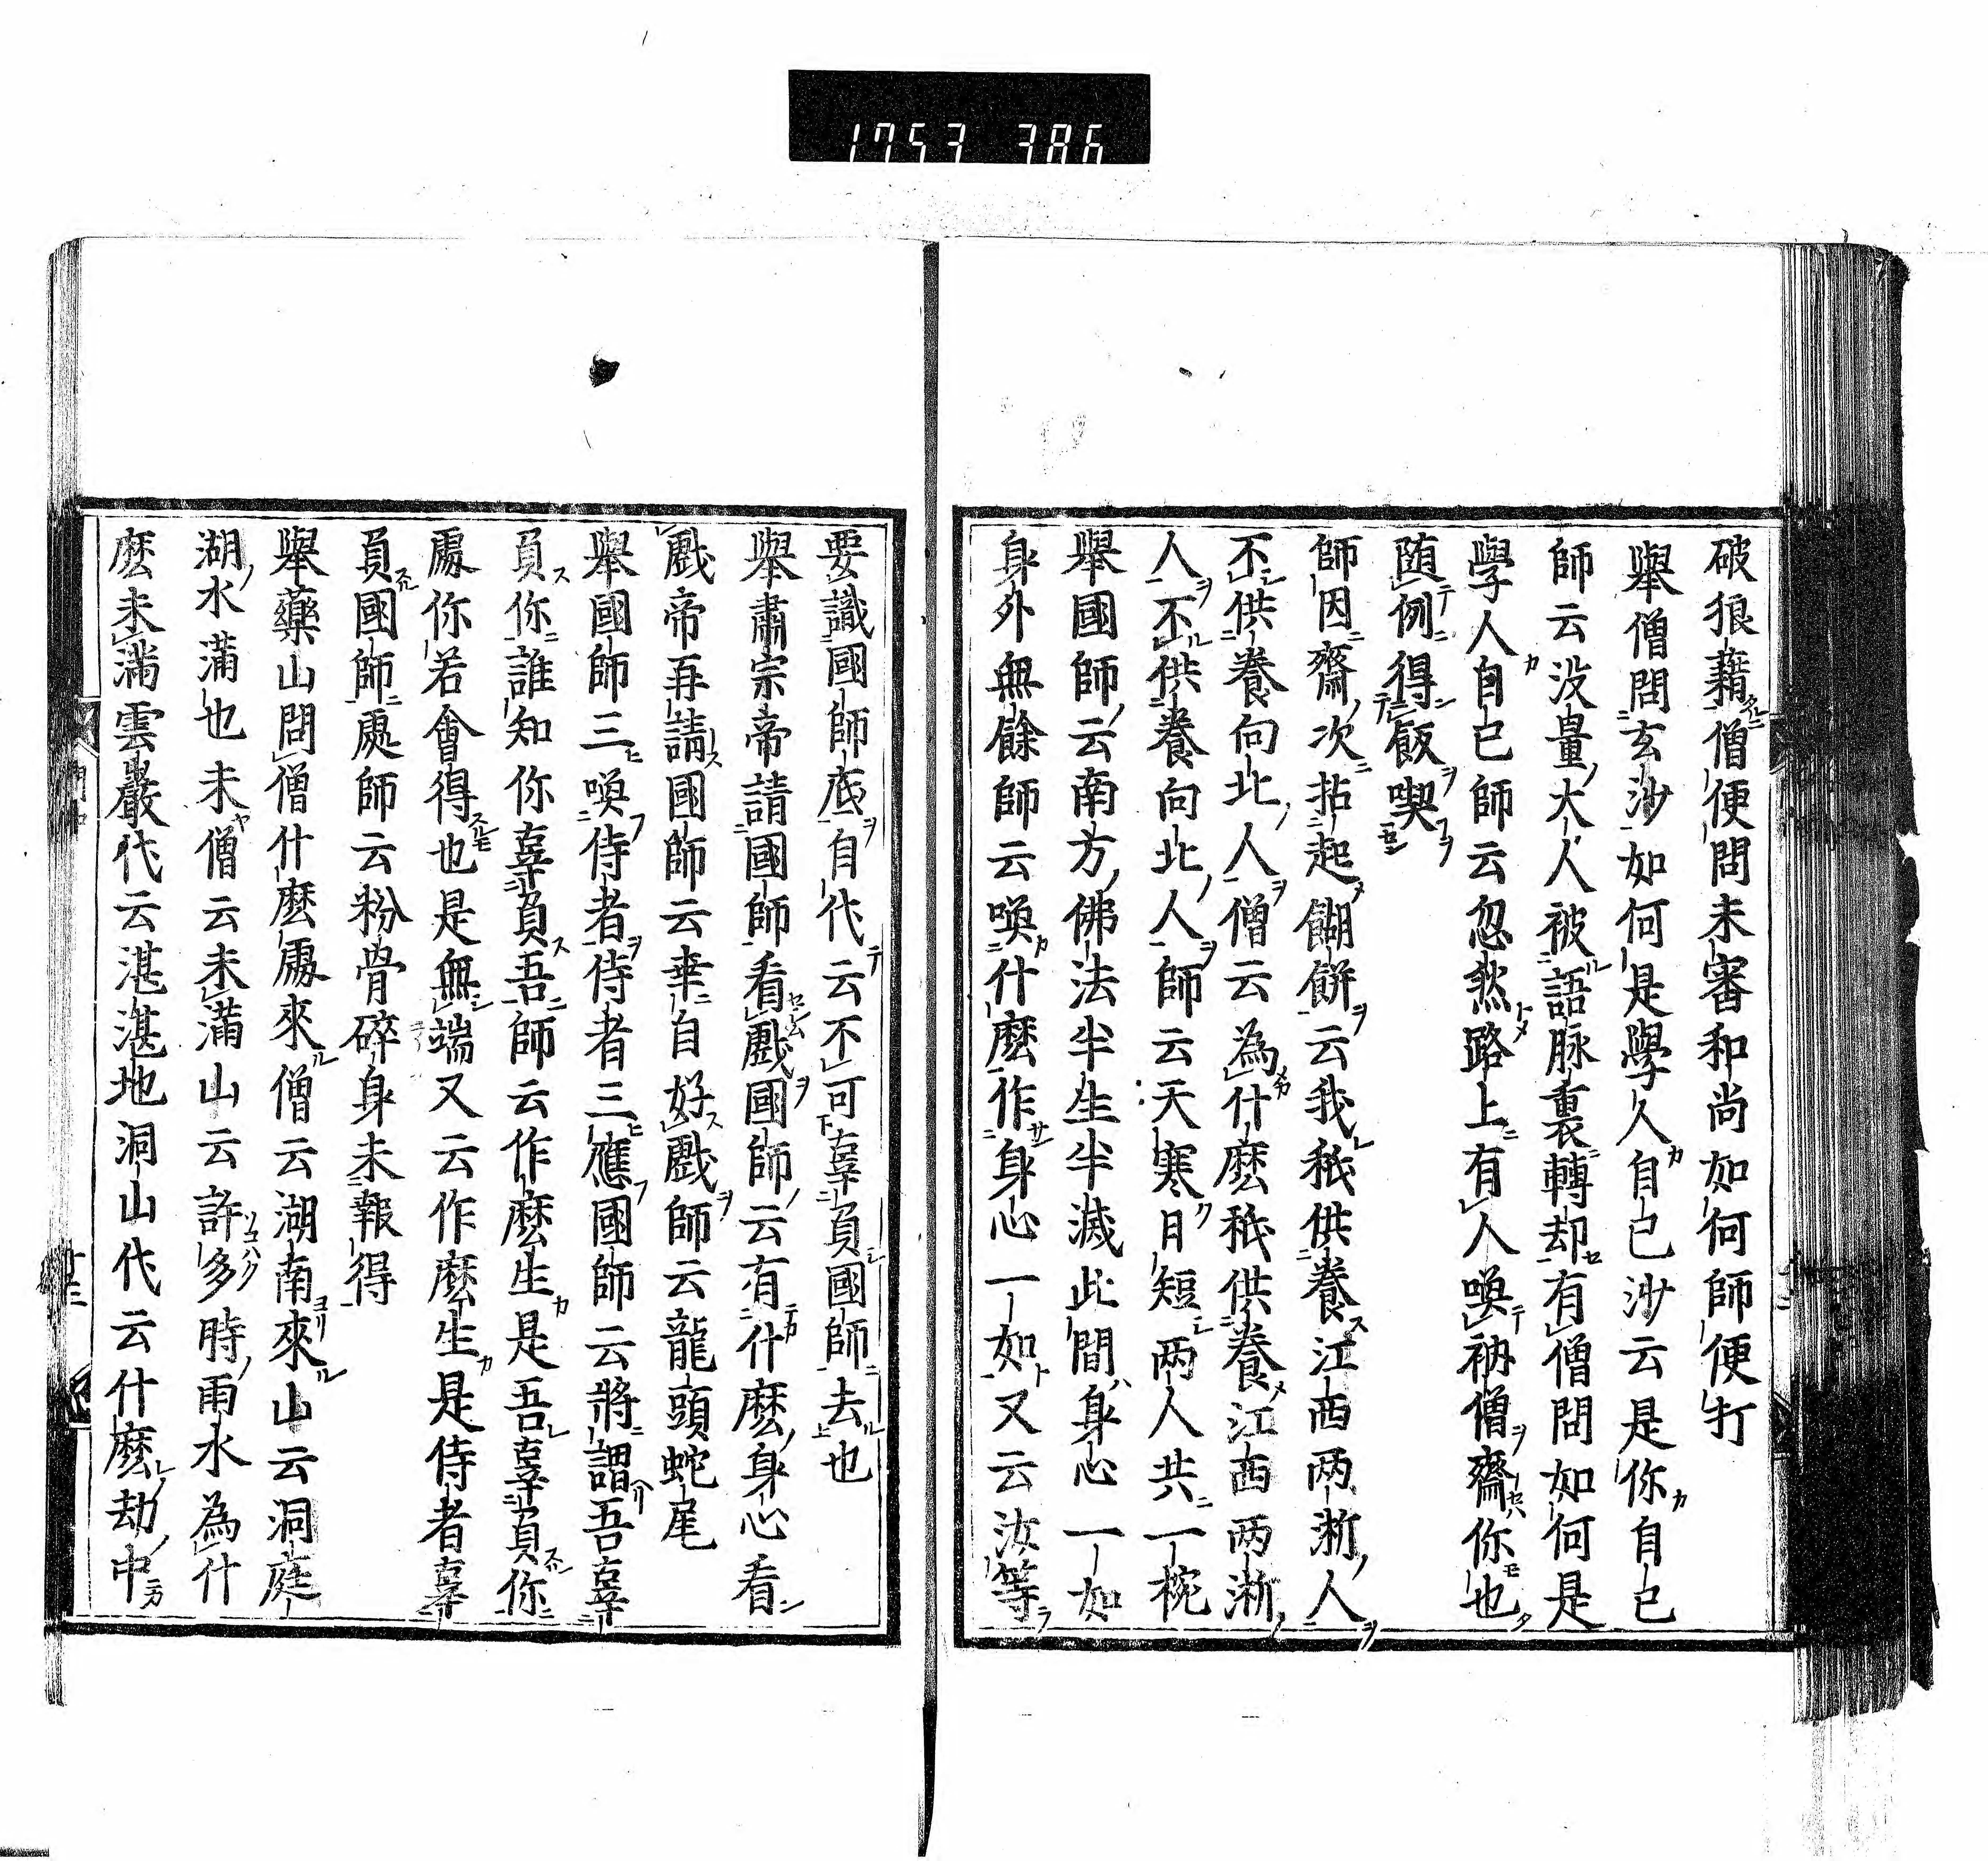 1753 386
破狼藉僧便問未審和尚如何師便打
舉僧問玄沙如何是學人自己沙云是你自己
師云没量大人被語脉裏轉却有僧問如何是
學人自己師云忽然路上有人喚衲僧齋你也
随例得飯喫
師因齋次拈起餬餅云我秖供養江西兩浙人
不供養向北人僧云為什麽秖供養江西兩浙
人不供養向北人師云天寒日短兩人共一椀
舉國師云南方佛法半生半滅此間身心一如
身外無餘師云喚什麽作身心一如又云汝等
要識國師底自代云不可辜負國師去也
舉肅宗帝請國師看戲國師云有什麽身心看
戲帝再請國師云幸自好戲師云龍頭蛇尾
舉國師三喚侍者侍者三應國師云將謂吾辜
負你誰知你辜負吾師云作麽生是吾辜負你
處你若會得也是無端又云作麽生是侍者辜
負國師處師云粉骨碎身未報得
舉藥山問僧什麽處來僧云湖南來山云洞庭
湖水滿也未僧云未滿山云許多時雨水為什
麽未滿雲巖代云湛湛地洞山代云什麽劫中
十三